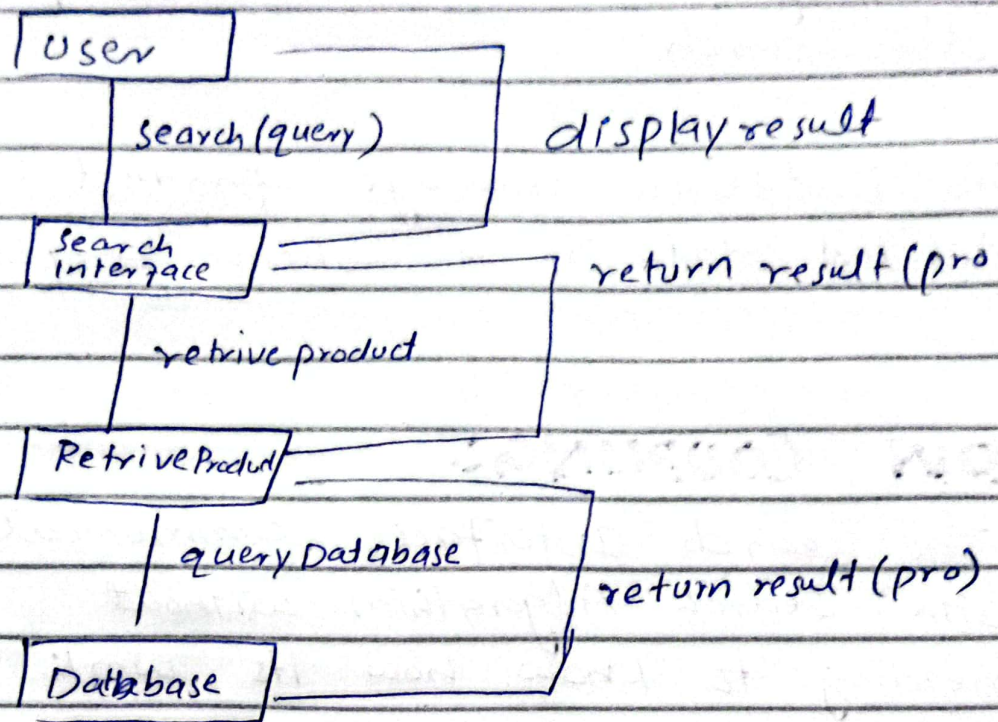 User
search (query)
display result
search
interface
return result (pro
retrive product
Retrive Product
query Database
return result (pro)
Database